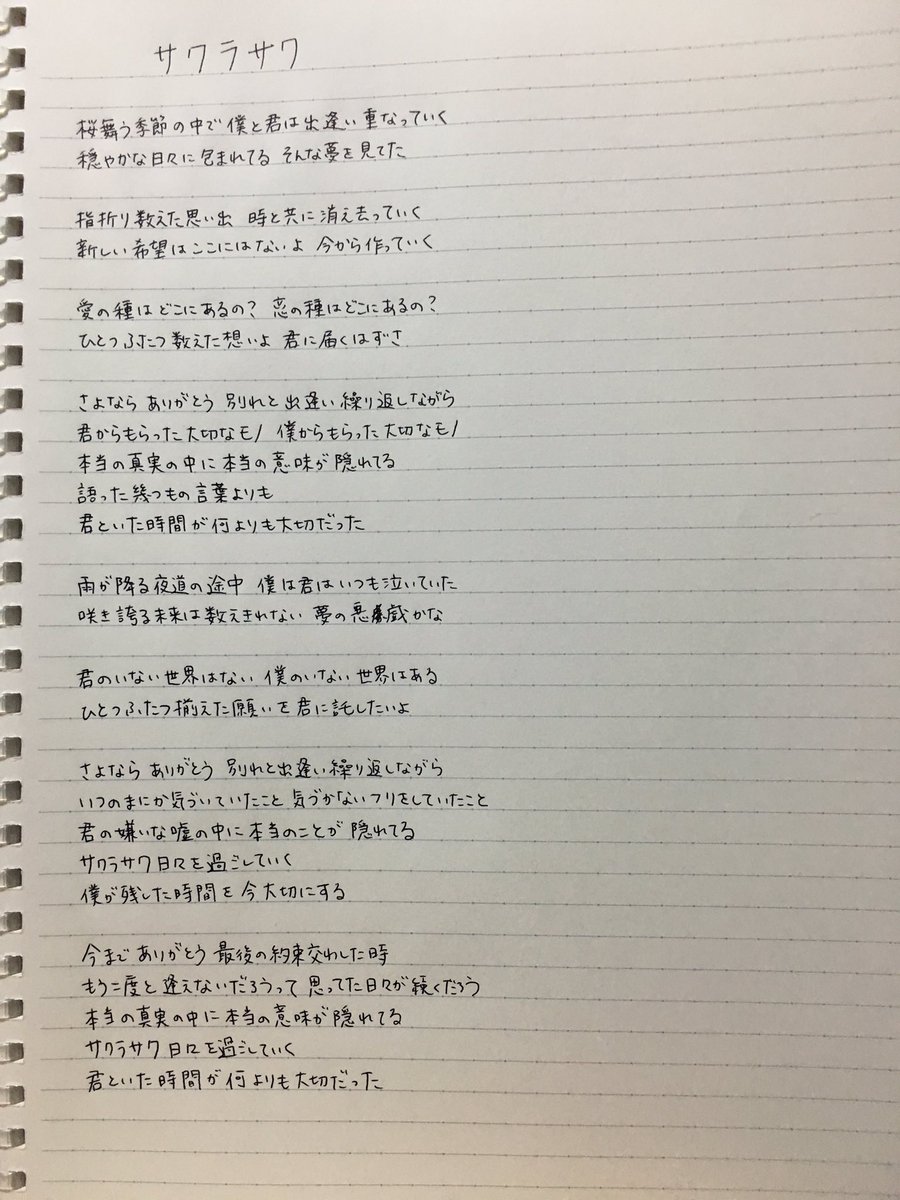 サクラサク
桜舞う季節の中で僕と君は出逢い重なっていく
穏やかな日々に包まれてる そんな夢を見てた
指折り数えた思い出 時と共に消え去っていく
新しい希望はここにはないよ 今から作っていく
愛の種はどこにあるの? 恋の種はどこにあるの?
ひとつふたつ数えた想いよ 君に届くはずさ
さよなら ありがとう 別れと出逢い繰り返しながら
君からもらった大切なモノ 僕からもらった大切なモノ
本当の真実の中に本当の意味が隠れてる
語った幾つもの言葉よりも
君といた時間が何よりも大切だった
雨が降る夜道の途中 僕は君はいつも泣いていた
咲き誇る未来は数えきれない 夢の悪戯かな
君のいない世界はない 僕のいない世界はある
ひとつふたつ揃えた願いを君に託したいよ
さよなら ありがとう 別れと出逢い繰り返しながら
いつのまにか気づいていたこと 気づかないフリをしていたこと
君の嫌いな嘘の中に本当のことが隠れてる
サクラサク日々を過ごしていく
僕が残した時間を今大切にする
今まで ありがとう 最後の約束交わした時
もう二度と逢えないだろうって 思ってた日々が続くだろう
本当の真実の中に本当の意味が隠れてる
サクラサク日々を過ごしていく
君といた時間が何よりも大切だった